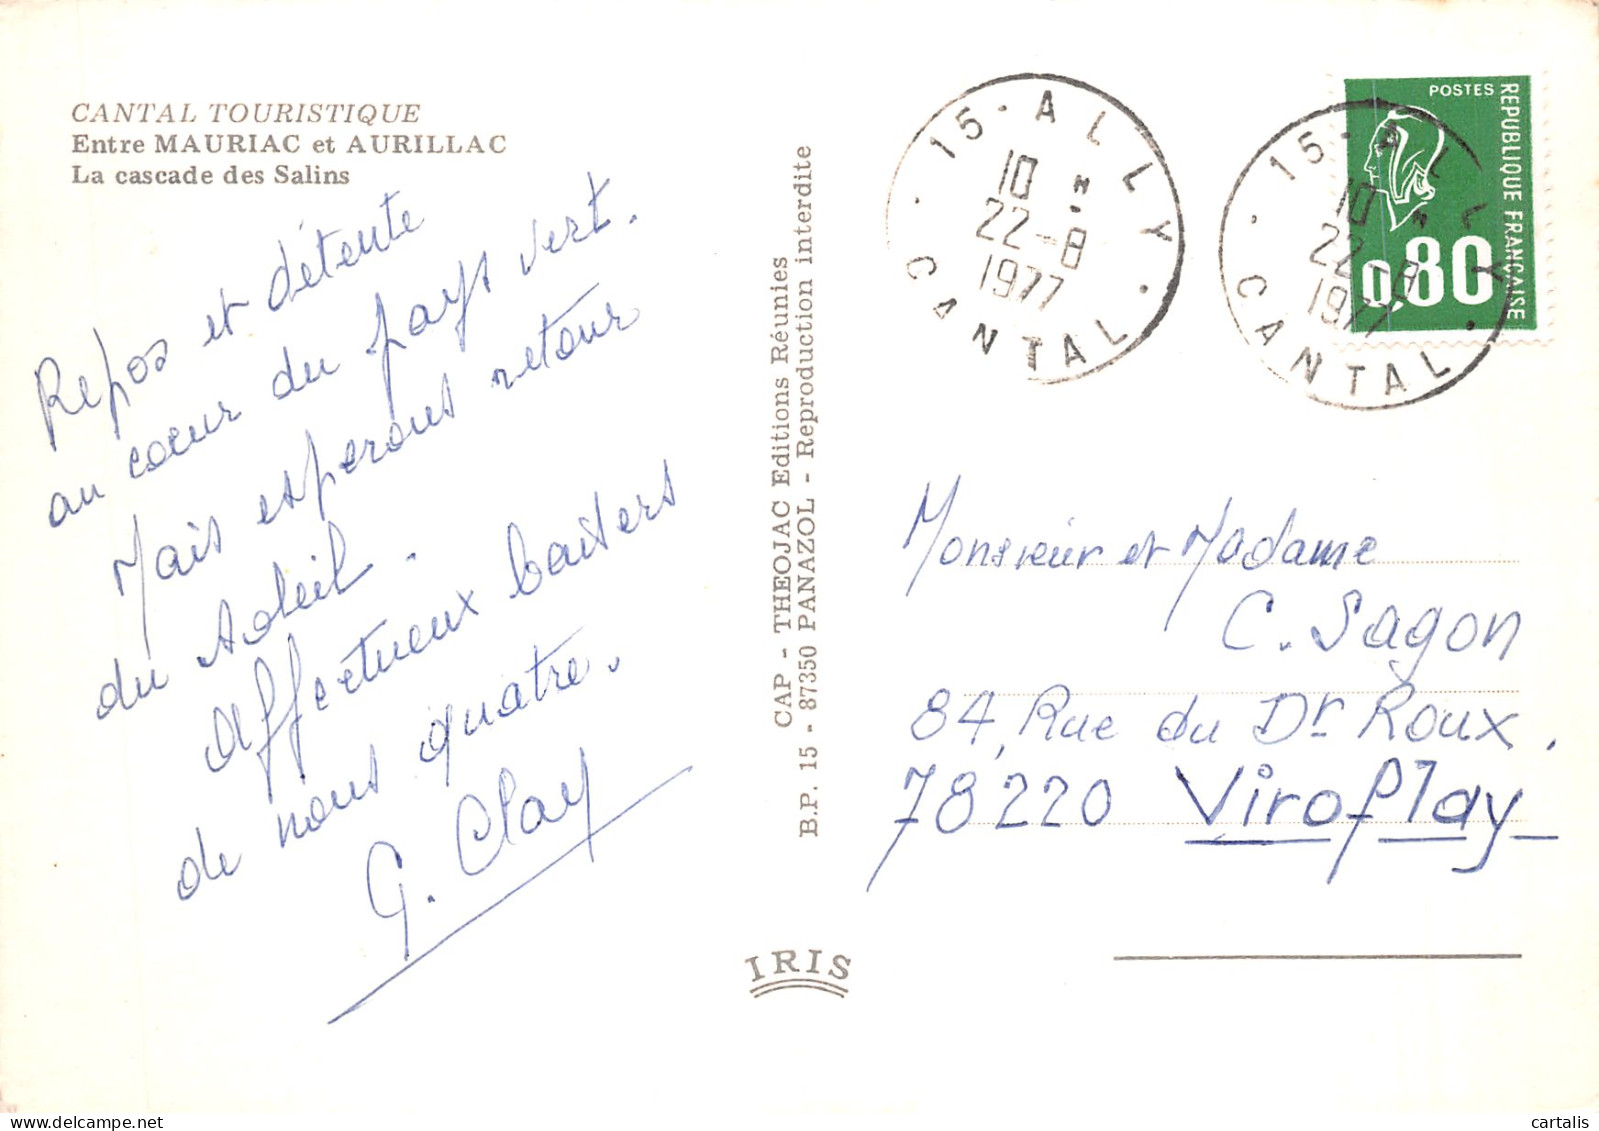 CANTAL TOURISTIQUE
Entre MAURIAC et AURILLAC
La cascade des Salins
Repos et détente
au coeur du pays vert.
Mais esperons retour
du soleil.
Affectueux baisers
de nous quatre.
G. Clay
CAP - THEOJAC Editions Réunies
B.P. 15 - 87350 PANAZOL - Reproduction interdite
IRIS
15 - ALLY
10 H
22-8
1977
CANTAL
15 - ALLY
10 H
22-8
1977
CANTAL
POSTES
REPUBLIQUE FRANÇAISE
0.80
Monsieur et Madame
C. Sagon
84, Rue du Dr Roux.
78220 Viroflay
cartalis